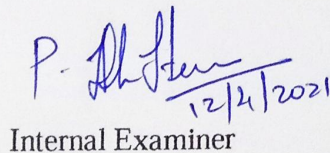 P.
12/4/2021
Internal Examiner